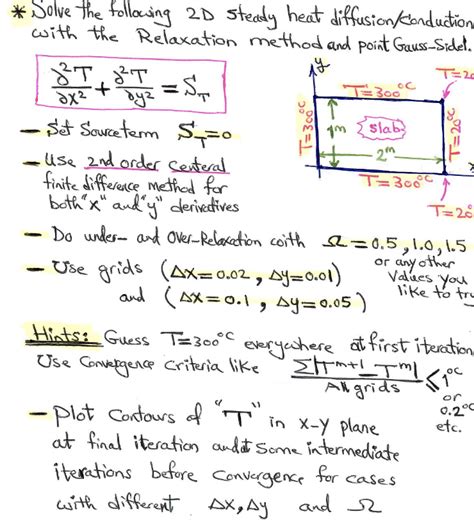 * Solve the following 2D steady heat diffusion/conduction
with the Relaxation method and point Gauss-Sidel.
∂²T/∂x² + ∂²T/∂y² = S_T
y
T=300°C
T=20
T=300°C
1m
slab
2m
T=20°C
x
T=300°C
T=20
- Set Source term S_T=0
- Use 2nd order centeral
finite difference method for
both "x" and "y" derivatives
- Do under- and Over-Relaxation with Ω=0.5, 1.0, 1.5
or any other
values you
like to try
- Use grids (Δx=0.02, Δy=0.01)
and (Δx=0.1, Δy=0.05)
Hints: Guess T=300°C everywhere at first iteration
Use Convergence Criteria like Σ|T^m+1 - T^m| / All grids ≤ 1°C
or
0.2°C
etc.
- plot Contours of "T" in x-y plane
at final iteration and at Some intermediate
iterations before Convergence for cases
with different Δx, Δy and Ω